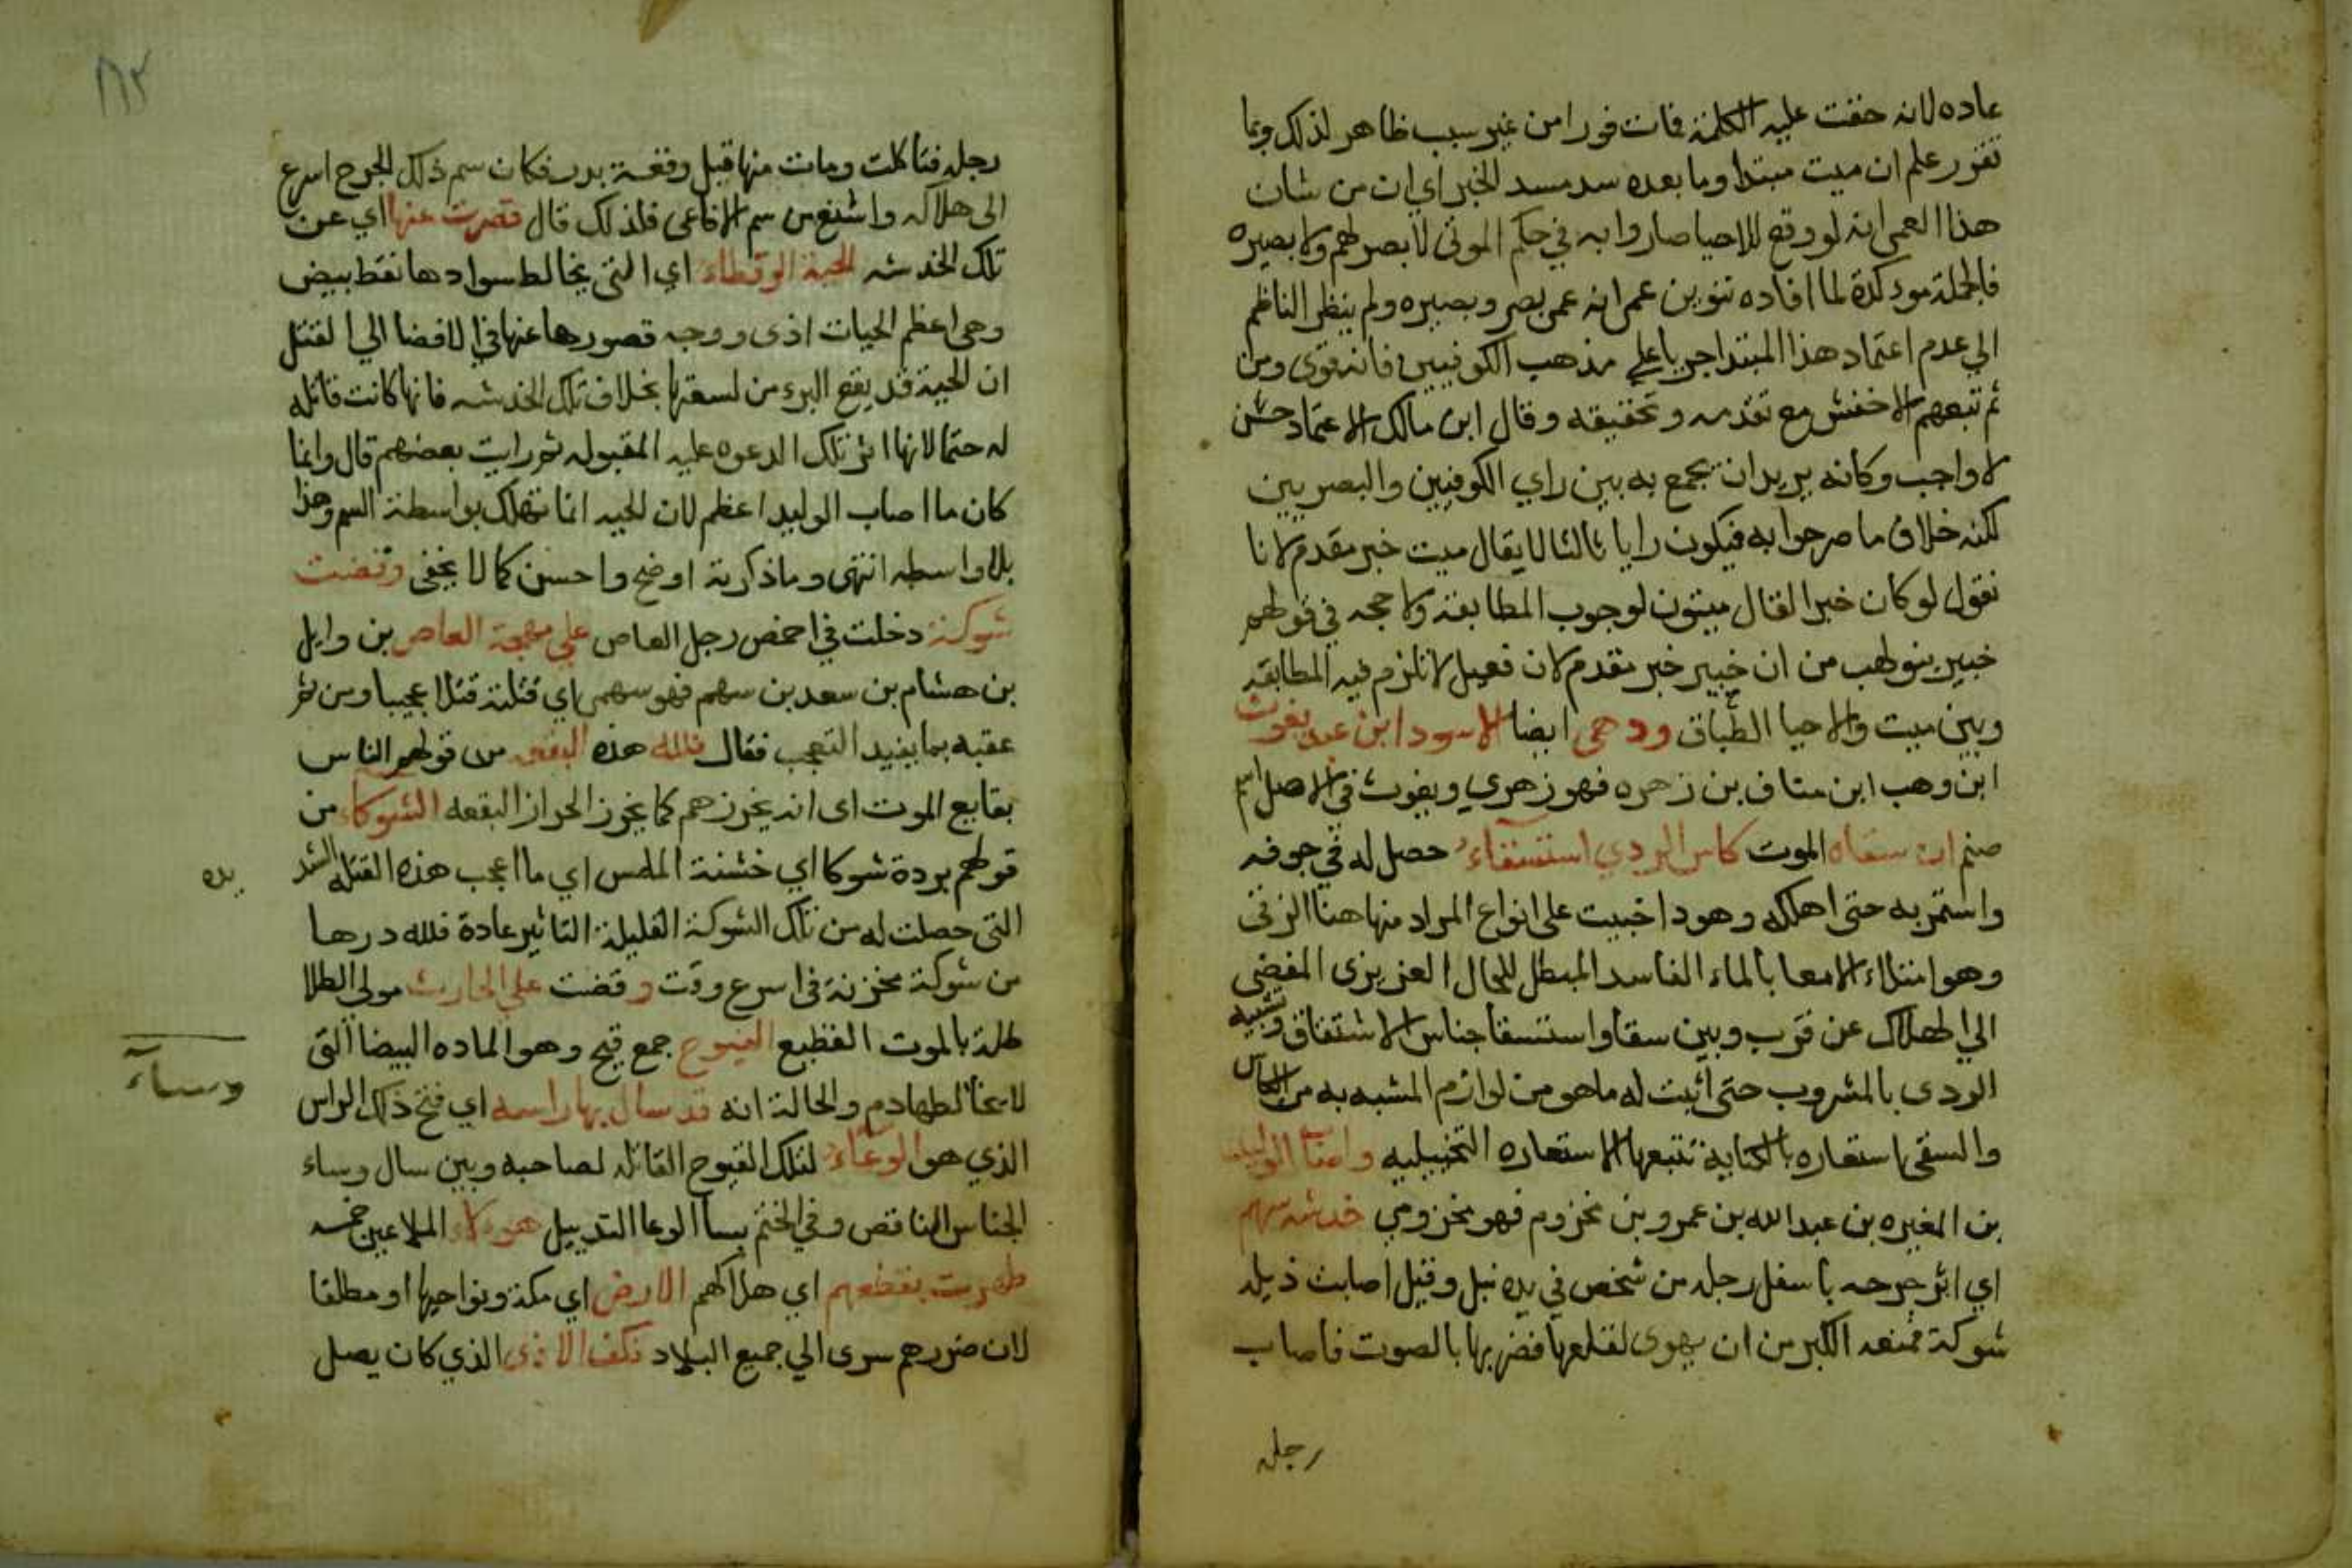 عاده لانه حقت عليه الكلمة فات فورا من غير سبب ظاهر لذلك وبما
تقرر علم ان ميت مبتدا وما بعده سد مسد الخبر اي ان من شان
هذا العمى انه لو وقع للاحيا صاروا به في حكم الموتى لا بصر لهم ولا بصيره
فالجملة موكدة لما افاده تنوين عمى انه عمى بصر وبصيره ولم ينظر الناظم
الي عدم اعتماد هذا المبتدا جريا علي مذهب الكوفيين فانه قوى ومن
ثم تبعهم الاخفش مع تقدمه وتحقيقه وقال ابن مالك الاعتماد حسن
لا واجب وكانه يريد ان يجمع به بين راي الكوفيين والبصريين
لكنه خلاف ما صرحوا به فيكون رايا ثالثا لا يقال ميت خبر مقدم لانا
نقول لو كان خبرا لقال ميتون لوجوب المطابقة ولا حجه في قولهم
خبير بنو لهب من ان خبير خبر مقدم لان فعيل لا تلزم فيه المطابقه
وبين ميت والاحيا الطباق ودهى ايضا الاسود ابن عبد يغوث
ابن وهب ابن مناف بن زهره فهو زهري ويغوث في الاصل اسم
صنم ان سقاه الموت كاس الردي استسقاء حصل له في جوفه
واستمر به حتى اهلكه وهو داخبيث على انواع المراد منها هنا الزقى
وهو امتلاء الامعا بالماء الفاسد المبطل للحال العزيزى المفضى
الي الهلاك عن قرب وبين سقا واستسقا جناس الاشتقاق وتشبيه
الردى بالمشروب حتى اثبت له ما هو من لوازم المشبه به من الكاس
والسقى استعاره بالكناية تتبعها الاستعاره التخييليه واصاب الوليد
بن المغيره بن عبد الله بن عمرو بن مخزوم فهو مخزومي خدشة سهم
اي اثر جرحه باسفل رجله من شخص في يده نبل وقيل اصابت ذيله
شوكة فمنعه الكبر من ان يهوى لقلعها فضربها بالصوت فاصاب
رجله
١٨٢
رجله فتاكلت ومات منها قبل وقعة بدر فكان سم ذلك الجرح اسرع
الى هلاكه واشنع من سم الافاعى فلذلك قال قصرت عنها اي عن
تلك الخدشه الحية الرقطاء اي التى يخالط سوادها نقط بيض
وهى اعظم الحيات اذى ووجه قصورها عنها في الافضا الي القتل
ان الحية قد يقع البرء من لسعتها بخلاف تلك الخدشه فانها كانت قاتله
له حتما لانها اثر تلك الدعوه عليه المقبوله ثم رايت بعضهم قال وانما
كان ما اصاب الوليد اعظم لان الحيه انما تهلك بواسطة السم وهذا
بلا واسطه انتهى وما ذكرته اوضح واحسن كما لا يخفى وقضت
شوكة دخلت في اخمص رجل العاص علي مهجة العاص بن وايل
بن هشام بن سعد بن سهم فهو سهمي اي قتلته قتلا عجيبا ومن ثم
عقبه بما يفيد التعجب فقال فلله هذه النقعه من قولهم الناس
بقايع الموت اى انه يخوزهم كما يخوز الحراز البقعه الشوكاء من
قولهم بردة شوكا اي خشنة الملمس اي ما اعجب هذه القتله الشد
يده
التى حصلت له من تلك الشوكة القليلة التاثير عادة فلله درها
من شوكة مخزنة في اسرع وقت وقضت علي الحارث مولي الطلا
طلة بالموت الفظيع القيوح جمع قيح وهو الماده البيضا التى
لا يخالطها دم والحالة انه قد سال بها راسه اي فتح ذلك الراس
وساء
الذي هو الوعاء لتلك القيوح القاتله لصاحبه وبين سال وساء
الجناس الناقص وفي الختم بسا الوعا التدييل هو لاء الملاعين خمسه
طهرت بقطعهم اي هلاكهم الارض اي مكة ونواحيها او مطلقا
لان ضررهم سرى الي جميع البلاد فكف الاذى الذي كان يصل